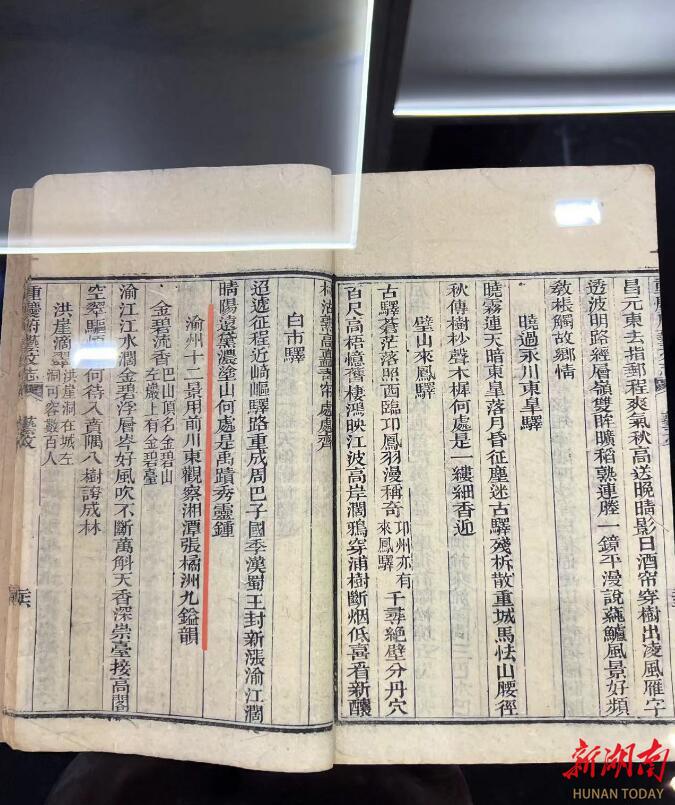 昌元東去指郵程爽氣秋高送晚晴影日酒帘穿樹出凌風雁字
透波明路經層嶺雙眸曠稻熟連塍一鏡平漫說蓴鱸風景好頻
教棖觸故鄉情
曉過永川東皐驛
曉霧連天暗東皐落月昏征塵迷古驛殘柝散重城馬怯山腰徑
秋傳樹杪聲木樨何處是一縷細香迎
璧山來鳳驛
古驛蒼茫落照西臨邛鳳羽漫稱奇邛州亦有來鳳驛千尋絶壁分丹穴
百尺高梧憶舊棲鴻映江波高岸濶鴉穿浦樹斷烟低喜看新釀
村沽熟高矗靑帘處處齊
白市驛
迢遞征程近崎嶇驛路重成周巴子國季漢蜀王封新漲渝江濶
晴陽遠黛濃塗山何處是禹蹟秀靈鍾
渝州十二景用前川東觀察湘潭張橘洲九鎰韻
金碧流香巴山頂名金碧山左巖上有金碧臺
渝江江水濶金碧浮層岑好風吹不斷萬斛天香深崇臺接高閣
空翠驅煩何待入賁隅八樹誇成林
洪崖滴翠洪崖洞在城左洞可容數百人
重慶府藝文志
藝文
新湖南
HUNAN TODAY